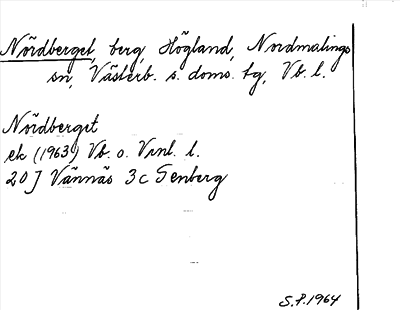 Nördberget, berg, Högland, Nordmalings
sn, Västerb. s. doms. tg, Vb. l.
Nördberget
ek (1963) Vb. o. Vrnl. l.
20 J Vännäs 3 c Tenberg
S.P. 1964